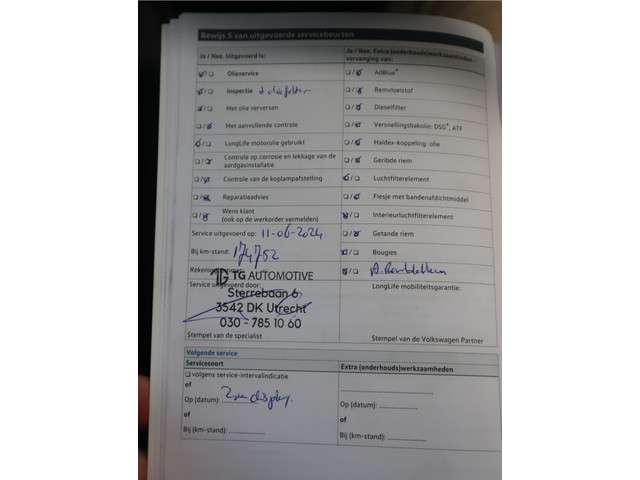 Bewijs 5 van uitgevoerde servicebeurten
Ja / Nee. Uitgevoerd is:
Olieservice
Inspectie + oliefilter
Met olie verversen
Met aanvullende controle
LongLife motorolie gebruikt
Controle op corrosie en lekkage van de
aardgasinstallatie
Controle van de koplampafstelling
Reparatieadvies
Wens klant
(ook op de werkorder vermelden)
Service uitgevoerd op: 11-06-2024
Bij km-stand: 174752
Service uitgevoerd door:
TG AUTOMOTIVE
Sterrebaan 6
3542 DK Utrecht
030 - 785 10 60
Stempel van de specialist
Ja / Nee. Extra (onderhouds)werkzaamheden
vervanging van:
AdBlue®
Remvloeistof
Dieselfilter
Versnellingsbakolie: DSG®, ATF
Haldex-koppeling: olie
Geribde riem
Luchtfilterelement
Flesje met bandenafdichtmiddel
Interieurluchtfilterelement
Getande riem
Bougies
LongLife mobiliteitsgarantie:
Stempel van de Volkswagen Partner
Volgende service
Servicesoort
volgens service-intervalindicatie
of
Op (datum): Zie display
of
Bij (km-stand):
Extra (onderhouds)werkzaamheden
Op (datum):
of
Bij (km-stand):